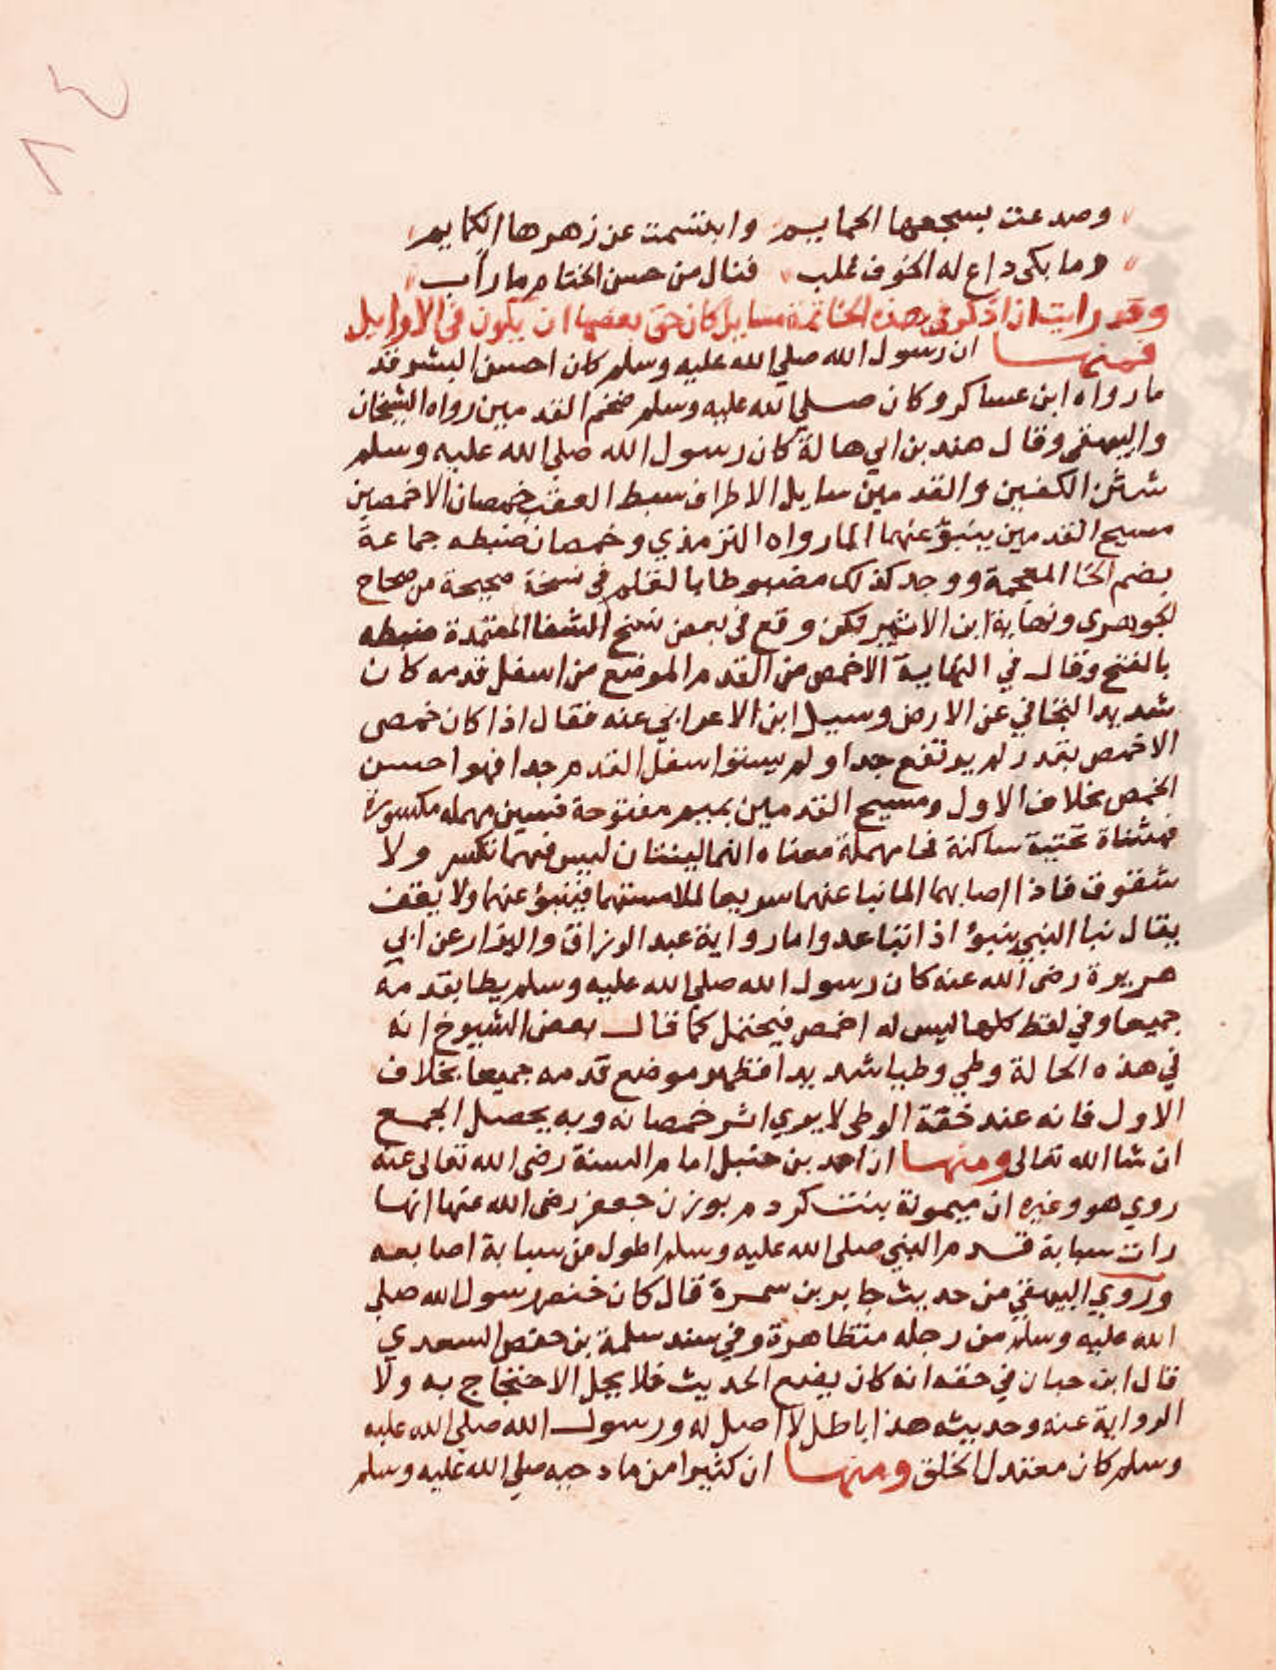 وصدعت بسجعها الحمايم وابتسمت عن زهرها الكمايم
وما بكى داع له الخوف غلب فنال من حسن الختام ما رأب
وقد رايت ان اذكر في هذه الخاتمة مسايل كان حق بعضها ان يكون في الاوايل
فمنها ان رسول الله صلي الله عليه وسلم كان احسن البشر قد
ما رواه ابن عساكر وكان صلي الله عليه وسلم ضخم القدمين رواه الشيخان
والبيهقي وقال هند بن ابي هالة كان رسول الله صلي الله عليه وسلم
شثن الكفين والقدمين سايل الاطراف سبط العقب خمصان الاخمصين
مسيح القدمين ينبؤ عنهما الما رواه الترمذي وخمصان ضبطه جماعة
بضم الخا المعجمة ووجد كذلك مضبوطا بالقلم في نسخة صحيحة من صحاح
لجوهرى ونهاية ابن الاثير لكن وقع في بعض نسخ الشفا المعتمدة ضبطه
بالفتح وقال في النهاية الاخمص من القدم الموضع من اسفل قدمه كان
شديد التجافي عن الارض وسيل ابن الاعرابي عنه فقال اذا كان خمصى
الاخمص بقدر لم يرتفع جدا ولم يستوا سفل القدم جدا فهو احسن
الخمص بخلاف الاول ومسيح القدمين بميم مفتوحة فسين مهمله مكسورة
فمثناة تحتية ساكنة فحا مهملة معناه انهما لينتان ليس فيهما تكسر ولا
شقوق فاذا اصابهما الما نبا عنهما سريعا لملامستهما فينبؤ عنهما ولا يقف
يقال نبا النبي ينبؤ اذا تباعد واما رواية عبد الرزاق والبزار عن ابي
هريرة رضي الله عنه كان رسول الله صلي الله عليه وسلم يطا بقدمه
جميعا وفي لفظ كلها ليس له اخمص فيحتمل كما قال بعض الشيوخ انه
في هذه الحالة وطي وطيا شديدا فظهر موضع قدمه جميعا بخلاف
الاول فانه عند خفة الوطى لا يري اثر خمصانه وبه يحصل الجمع
ان شا الله تعالى ومنها ان احمد بن حنبل امام السنة رضي الله تعالى عنه
روي هو وغيره ان ميمونة بنت كردم بوزن جعفر رضي الله عنها انها
رات سبابة قدم النبي صلى الله عليه وسلم اطول من سبابة اصابعه
وروي البيهقي من حديث جابر بن سمرة قال كان خنصر رسول الله صلي
الله عليه وسلم من رجله متظاهرة وفي سند سلمة بن حفص السعدي
قال ابن حبان في حقه انه كان يضع الحديث فلا يحل الاحتجاج به ولا
الرواية عنه وحديثه هذا باطل لا اصل له ورسول الله صلي الله عليه
وسلم كان معتدل الخلق ومنها ان كثيرا من مادحيه صلي الله عليه وسلم